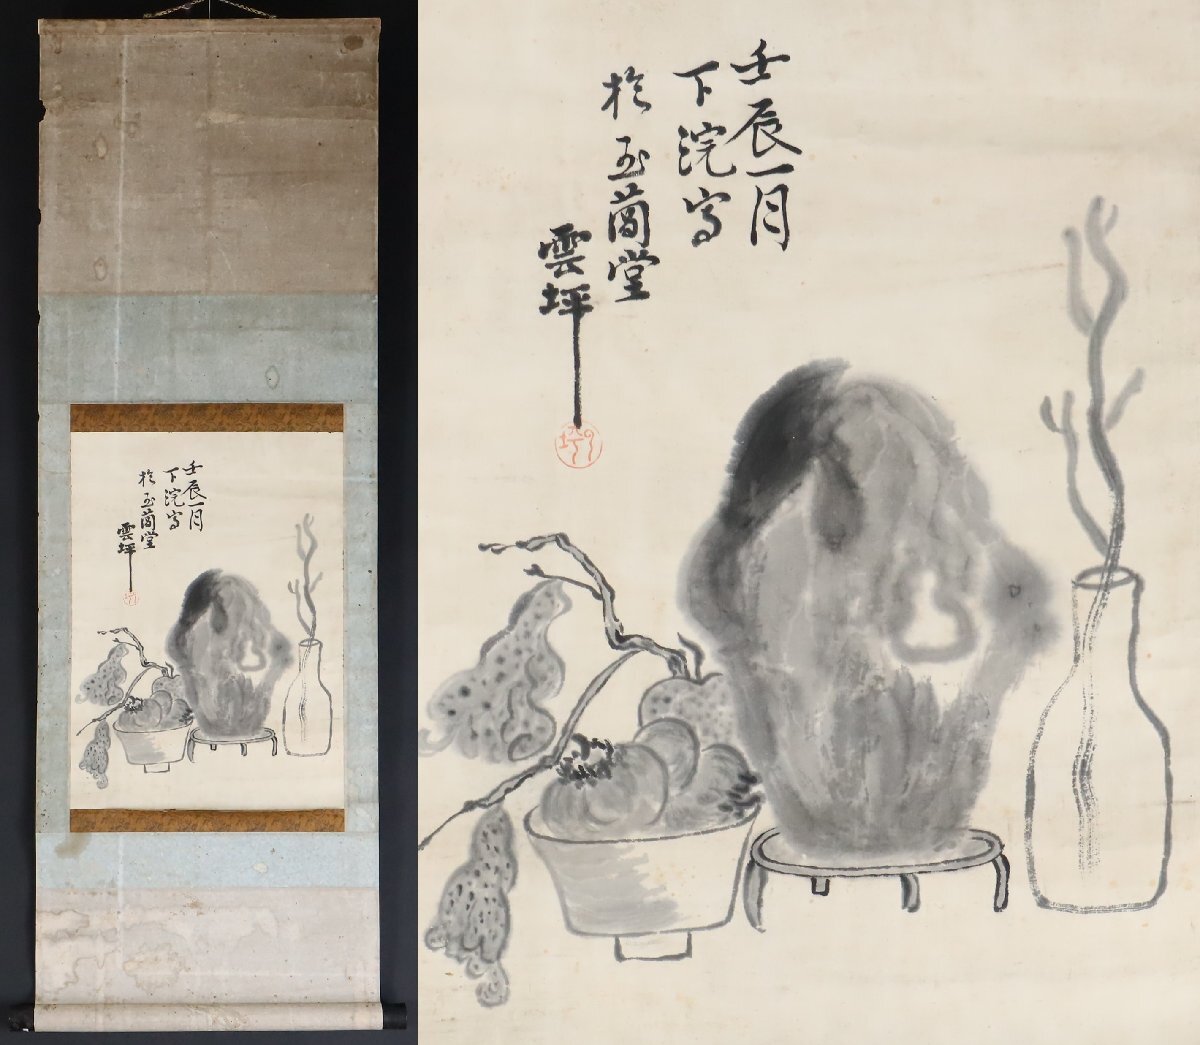 壬辰一月
下浣写
於玉蘭堂
雲坪
壬辰一月
下浣写
於玉蘭堂
雲坪